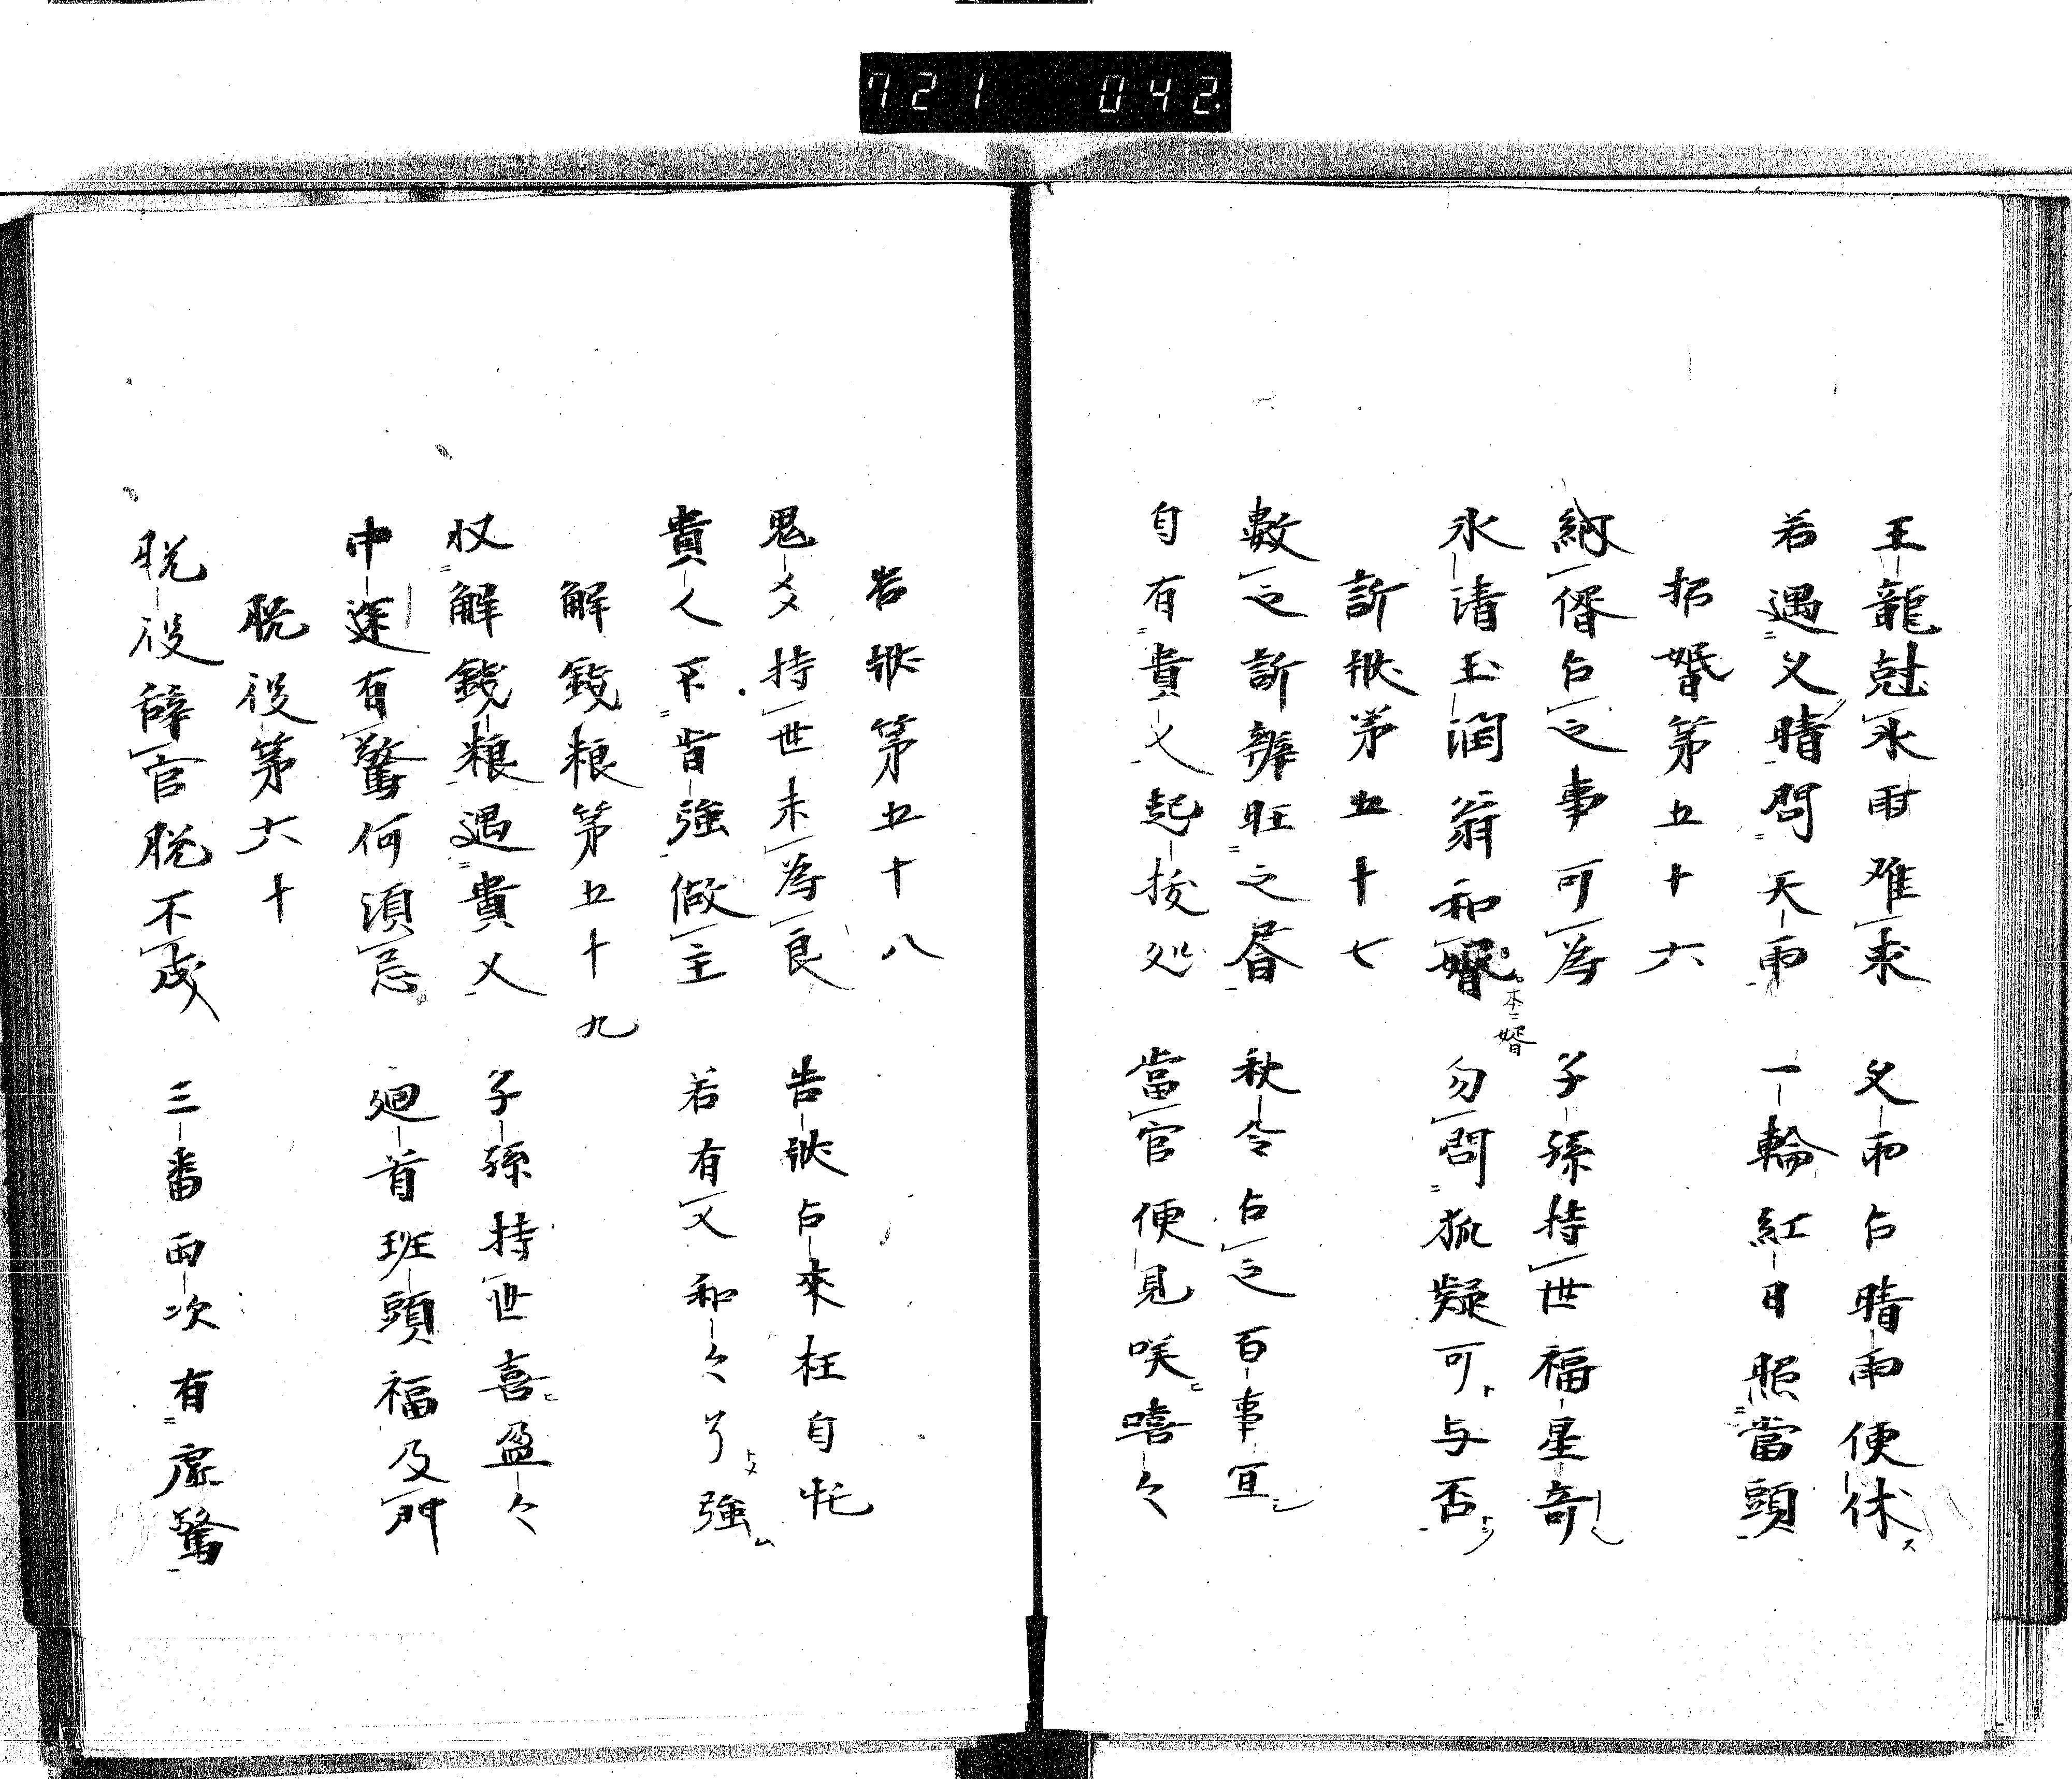 721 042
王龍尅水雨难来 父雨占晴雨便休
若遇父晴問天雨 一輪紅日照當頭
招婚第五十六
納偦占之事可為 子孫持世福星奇
氷清玉潤翁和婚 勿問狐疑可与否
本ニ婿
訴状第五十七
數之訴辨旺之昬 秋令占之百事宜
自有貴人起授処 當官便見咲嘻々
告状第五十八
鬼爻持世未為良 告状占来枉自忙
貴人不肯強做主 若有父和々了強
解銭粮第五十九
収解銭粮遇貴人 子孫持世喜盈々
中途有驚何須忌 廻首班頭福及門
脱役第六十
脱役辞官脱不成 三番両次有虚驚